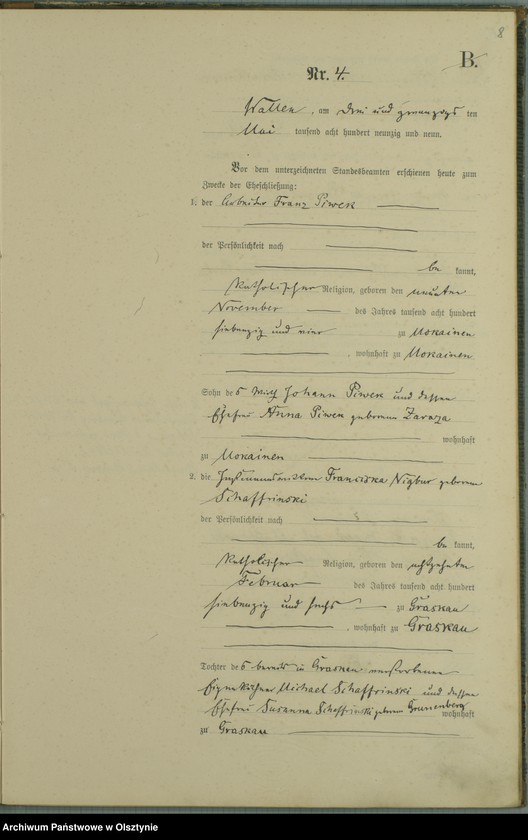 8
B.
Nr. 4.
Wallen, am drei und zwanzigsten
Mai tausend acht hundert neunzig und neun.
Vor dem unterzeichneten Standesbeamten erschienen heute zum
Zwecke der Eheschließung:
1. der Arbeiter Franz Piwek
der Persönlichkeit nach
be kannt,
katholischer Religion, geboren den neunten
November des Jahres tausend acht hundert
siebenzig und vier zu Mokainen
, wohnhaft zu Mokainen
Sohn des Johann Piwek und dessen
Ehefrau Anna Piwek geborene
wohnhaft
zu Mokainen
2. die Franziska Nigbur geborene
Schaffrinski
der Persönlichkeit nach
be kannt,
katholischer Religion, geboren den achtzehnten
Februar des Jahres tausend acht hundert
siebenzig und sechs zu Graskau
, wohnhaft zu Graskau
Tochter des bereits in verstorbenen
Eigenkäthner Michael Schaffrinski und dessen
Ehefrau Susanna Schaffrinski geborene Grunenberg
wohnhaft
zu Graskau
Archiwum Państwowe w Olsztynie